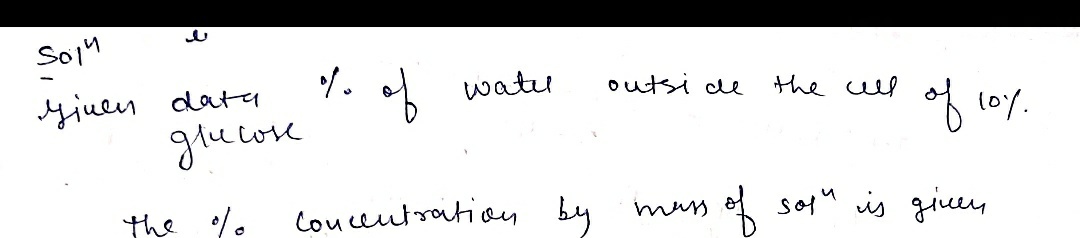 Solⁿ
Given data % of water outside the cell of 10%.
glucose
The % concentration by mass of solⁿ is given